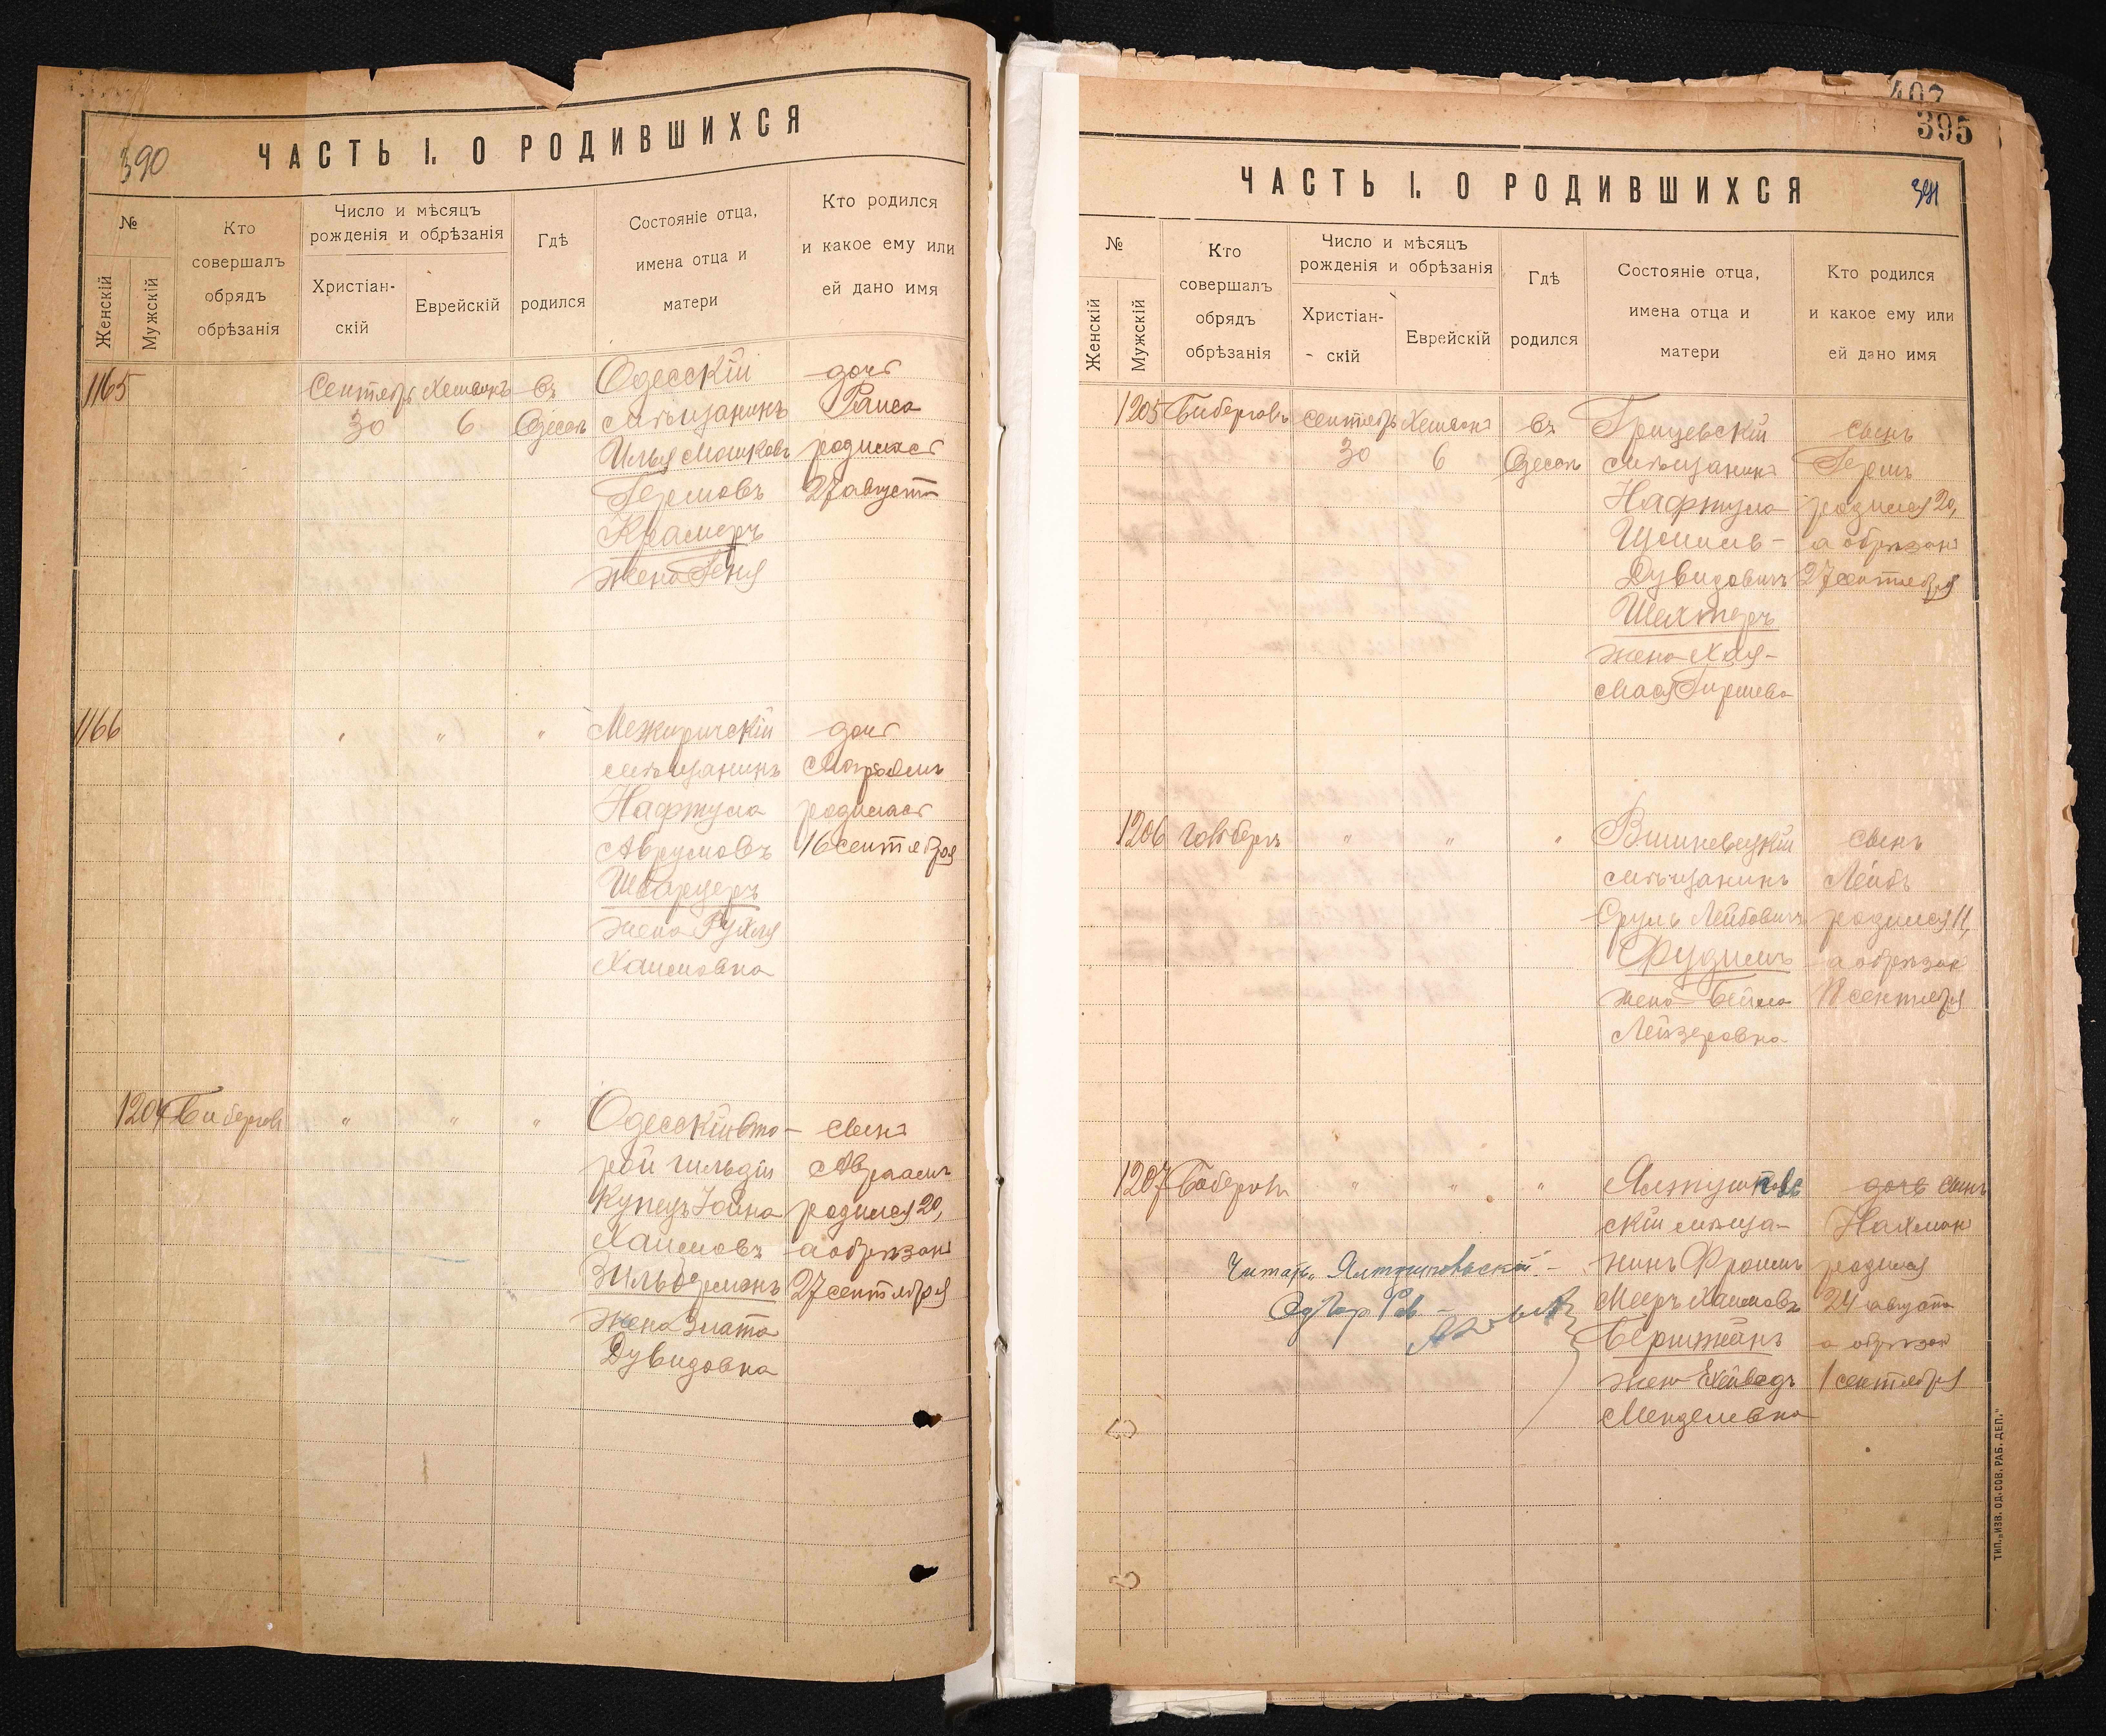 390
ЧАСТЬ I. О РОДИВШИХСЯ
№
Женскій
Мужскій
Кто совершалъ обрядъ обрѣзанія
Число и мѣсяцъ рожденія и обрѣзанія
Христіан-
скій
Еврейскій
Гдѣ родился
Состояніе отца, имена отца и матери
Кто родился и какое ему или ей дано имя
1165
Сентябрь
30
6
въ
Одессѣ
Одесскій
мѣщанинъ
Илья Мошковъ
Гершовъ
Крамеръ
жена Геня
дочь
Раиса
родилась
27 августа
1166
"
"
"
Межиричскій
мѣщанинъ
Нафтула
Аврумовъ
Шварцеръ
жена Рухля
Хаимовна
дочь
родилась
16 сентября
1204
"
"
"
Одесскій вто-
рой гильдіи
купецъ Іойна
Хаимовъ
Зильберманъ
жена Злата
Дувидовна
сынъ
Авраамъ
родился 20,
а обрѣзанъ
27 сентября
407
395
391
ЧАСТЬ I. О РОДИВШИХСЯ
№
Женскій
Мужскій
Кто совершалъ обрядъ обрѣзанія
Число и мѣсяцъ рожденія и обрѣзанія
Христіан-
скій
Еврейскій
Гдѣ родился
Состояніе отца, имена отца и матери
Кто родился и какое ему или ей дано имя
1205
сентябрь
30
6
въ
Одессѣ
Грицевскій
мѣщанинъ
Нафтула
Дувидовичъ
Шехтеръ
жена Хая-
Мася Гиршева
сынъ
Гершъ
родился 20,
а обрѣзанъ
27 сентября
1206
"
"
"
Вишневецкій
мѣщанинъ
Сруль Лейбовичъ
жена Бейла
Лейзеровна
сынъ
Лейбъ
родился 11,
а обрѣзанъ
18 сентября
1207
"
"
"
скій мѣща-
нинъ Фроимъ
Мееръ Хаимовъ
жена
Менделевна
дочь сынъ
Нахманъ
родился
24 августа
а обрѣзанъ
1 сентября
ТИП. „ИЗВ. ОД. СОВ. РАБ. ДЕП."